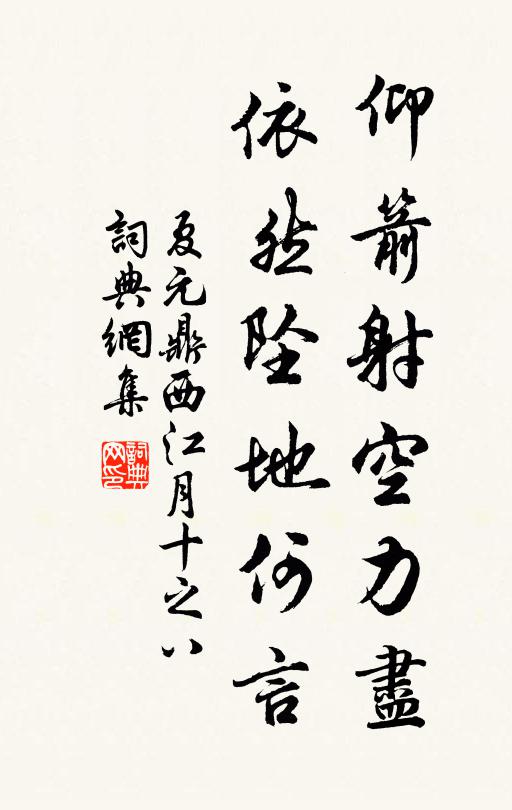 仰箭射空力盡
依然墜地何言
夏元鼎西江月十之八
詞典網集
詞典网印